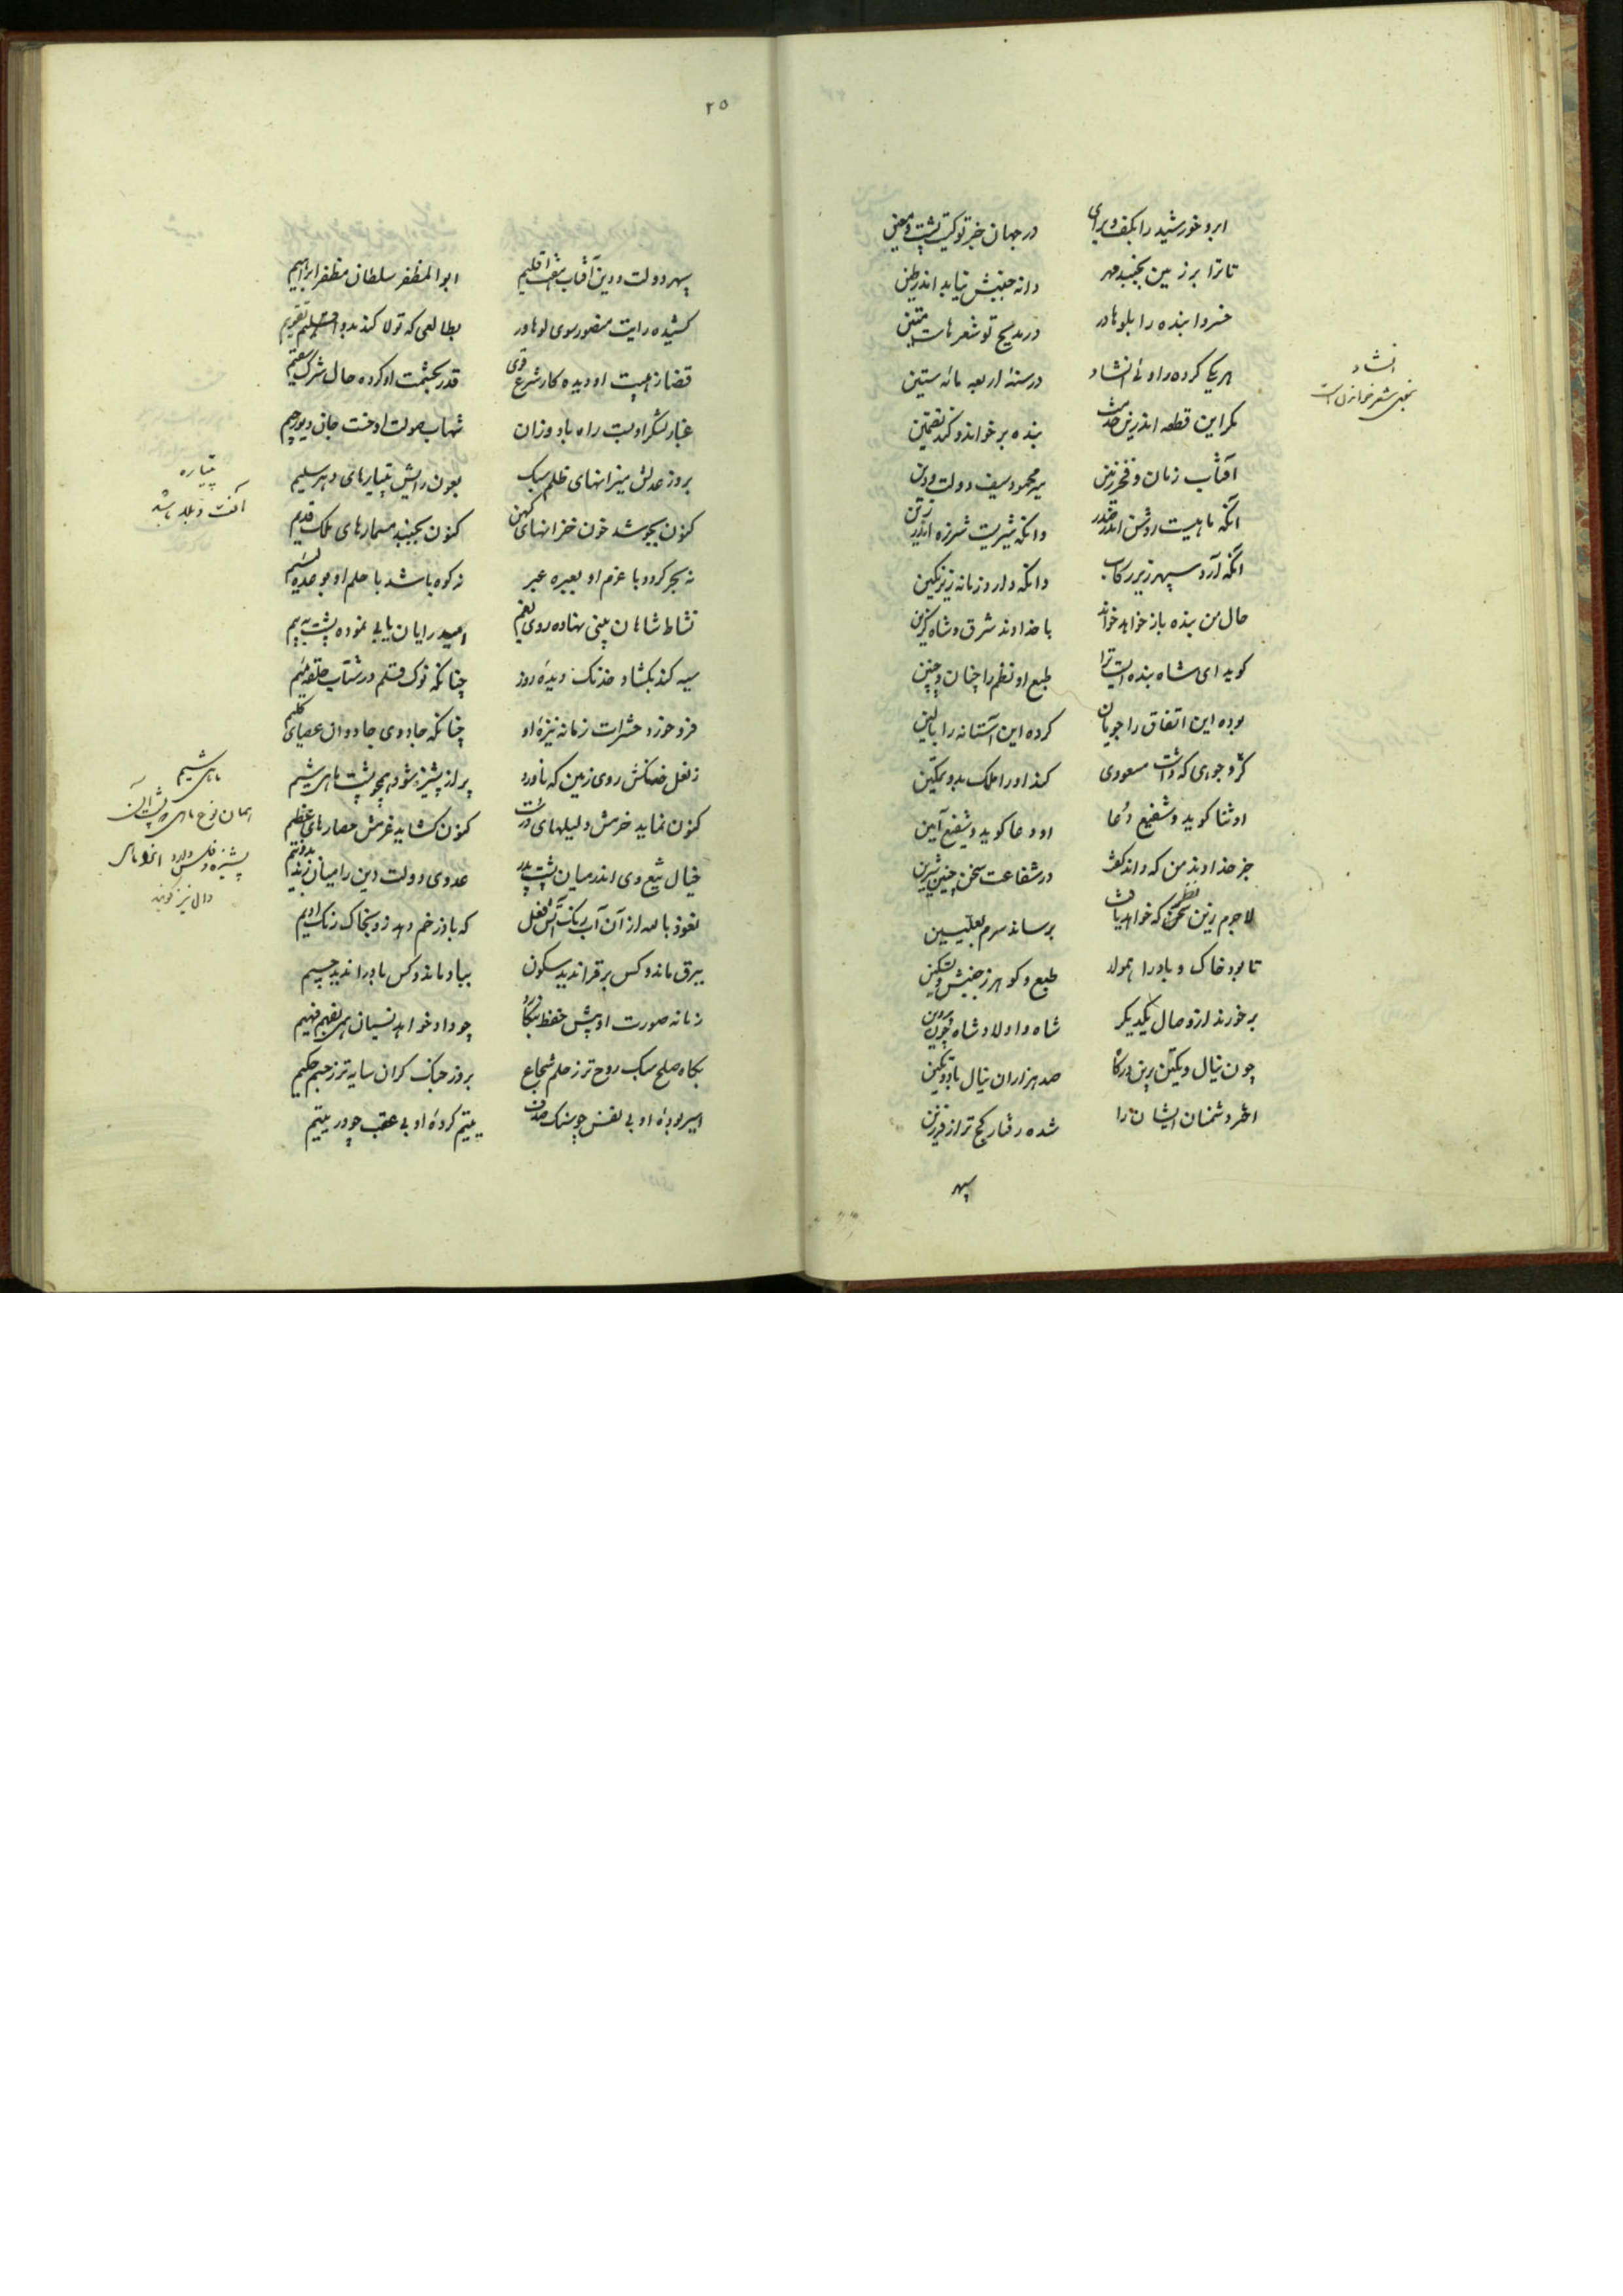 ابر و خورشید را بکف و برای در جهان جز تو کیست پشت و معین
تا ترا بر زمین بجنبد مهر دانه جنبش نیابد اندر طین
خسروا بنده را بلوهاور در مدیح تو شعرهاست متین
هریکی کرده راوئی انشاد در سنه اربعه مائه ستین
انشاد
بمعنی شعر خواندن است
مکر این قطعه اندرین خدمت بنده برخواند و کند تضمین
آفتاب زمان و فخر زمین میر محمود سیف دولت و دین
آنکه ماهیست روشن اندر صدر وانکه شیریست شرزه اندر زین
آنکه آرد سپهر زیر رکاب وانکه دارد زمانه زیر نکین
حال من بنده باز خواهد خواند با خداوند شرق و شاه کزین
کوید ای شاه بنده ایست ترا طبع او نظم را چنان و چنین
بوده این اتفاق را جویان کرده این آستانه را بالین
کژ و جوری که داشت مسعودی کند او را ملک بدو تمکین
او ثنا کوید و شفیع دعا او دعا کوید و شفیع آمین
جز خداوند من که داند کفت در شفاعت سخن چنین شیرین
لاجرم زین نظر که خواهد یافت برساند سرم بعلیین
تا بود خاک و باد را همواد طبع و کوهر ز جنبش و تسکین
برخورند از وصال یکدیکر شاه و اولاد شاه چون پروین
چون نیال و تکین برین درکاه صد هزاران نیال باد و تکین
اختر دشمنان ایشان را شده رفتار کج تر از فرزین
سپهر
۲۵
سپهر دولت و دین آفتاب هفت اقلیم ابو المظفر سلطان مظفر ابراهیم
کشیده رایت منصور سوی لوهاور بطالعی که تولا کند بدو تقویم
قضا ز هیبت او دیده کار شرع قوی قدر بحشمت او کرده حال شرک سقیم
غبار لشکر او بست راه باد وزان شهاب صولت او خست جان دیو رجیم
بروز عدلش میزانهای ظلم سبک بعون رایش پتیارهای دهر سلیم
پتیاره
آفت و بلا باشد
کنون بجوشد خون خزانهای کهن کنون بجنبد مسمارهای ملک قدیم
نه بحر کردد با عزم او بعبره عبر نه کوه باشد با حلم او بوعده
نشاط شاهان بینی نهاده روی بغم امید رایان یابی نموده پشت به بیم
سیه کند بکشاد خدنک دیده روز چنانکه نوک قلم در شتاب حلقه میم
فرو خورد حشرات زمانه نیزه او چنانکه جادوی جادوان عصای کلیم
ز نعل خنکش روی زمین که ناورد پر از پشیز شود همچو پشت ماهی شیم
ماهی شیم
همان نوع ماهی که پشت آن
پشیزه و فلس دارد انرا ماهی
دال نیز کویند
کنون نماید خرمش دلیلهای درست کنون کشاید عزمش حصارهای عظیم
خیال تیغ وی اندر میان پشت پدر عدوی دولت و دین را میان زند بدو نیم
نعوذ بالله از آن آب رنک آتش فعل که باد زخم دهد زو بخاک رنک ادیم
ببرق ماند و کس برق را ندید سکون بباد ماند و کس باد را ندید جسیم
زمانه صورت او پیش حفظ بنکارد چو داد خواهد نسیان بفهم فهیم
بکاه صلح سبک روح تر ز حلم شجاع بروز جنک کران سایه تر ز جسم حکیم
اسیر بوده او بی نفس چو سنک صدف یتیم کرده او بی عقب چو در یتیم